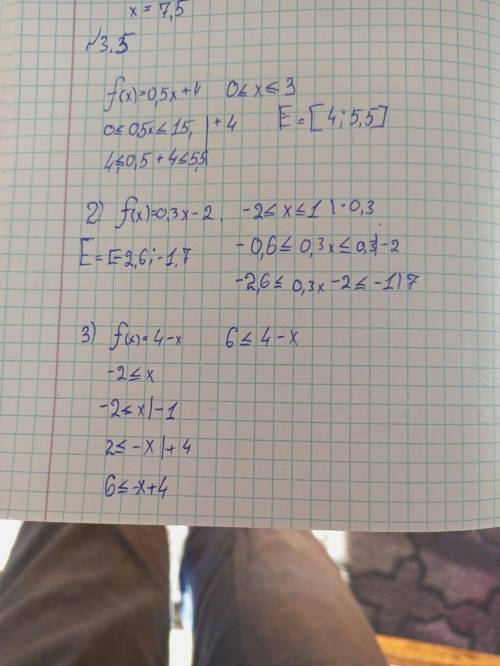 x = 7,5
№3.5
f(x)=0,5x+4 0≤x≤3
0≤0,5x≤1,5 | +4 E = [4;5,5]
4≤0,5+4≤5,5
2) f(x)=0,3x-2, -2≤x≤1 | ·0,3
E = [-2,6;-1,7 -0,6≤0,3x≤0,3|-2
-2,6≤ 0,3x -2≤ -1,7
3) f(x)=4-x 6≤4-x
-2≤x
-2≤x|-1
2≤-x|+4
6≤-x+4